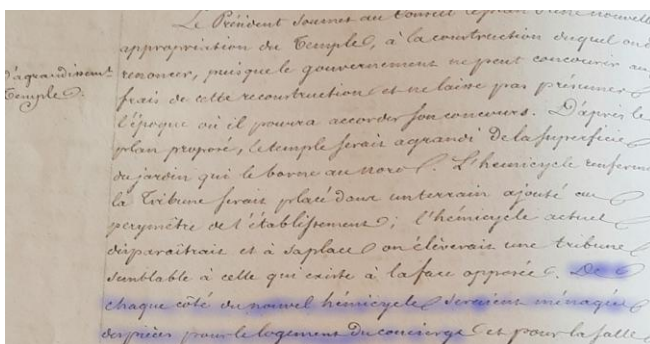 Le Président soumet au Conseil le plan d'une nouvelle
appropriation du Temple, à la construction duquel on a
d'agrandissemt
Temple.
renoncer, puisque le gouvernement ne peut concourir aux
frais de cette reconstruction et ne laisse pas présumer
l'époque où il pourra accorder son concours. D'après le
plan proposé, le temple serait agrandi de la superficie
du jardin qui le borne au nord. L'hémicycle renferm
la Tribune serait placé dans un terrain ajouté au
perymêtre de l'établissement; l'hémicycle actuel
disparaîtrait et à sa place on élèverait une tribune
semblable à celle qui existe à la face opposée. De
chaque côté du nouvel hémicycle seraient ménagées
des pièces pour le logement du concierge et pour la salle